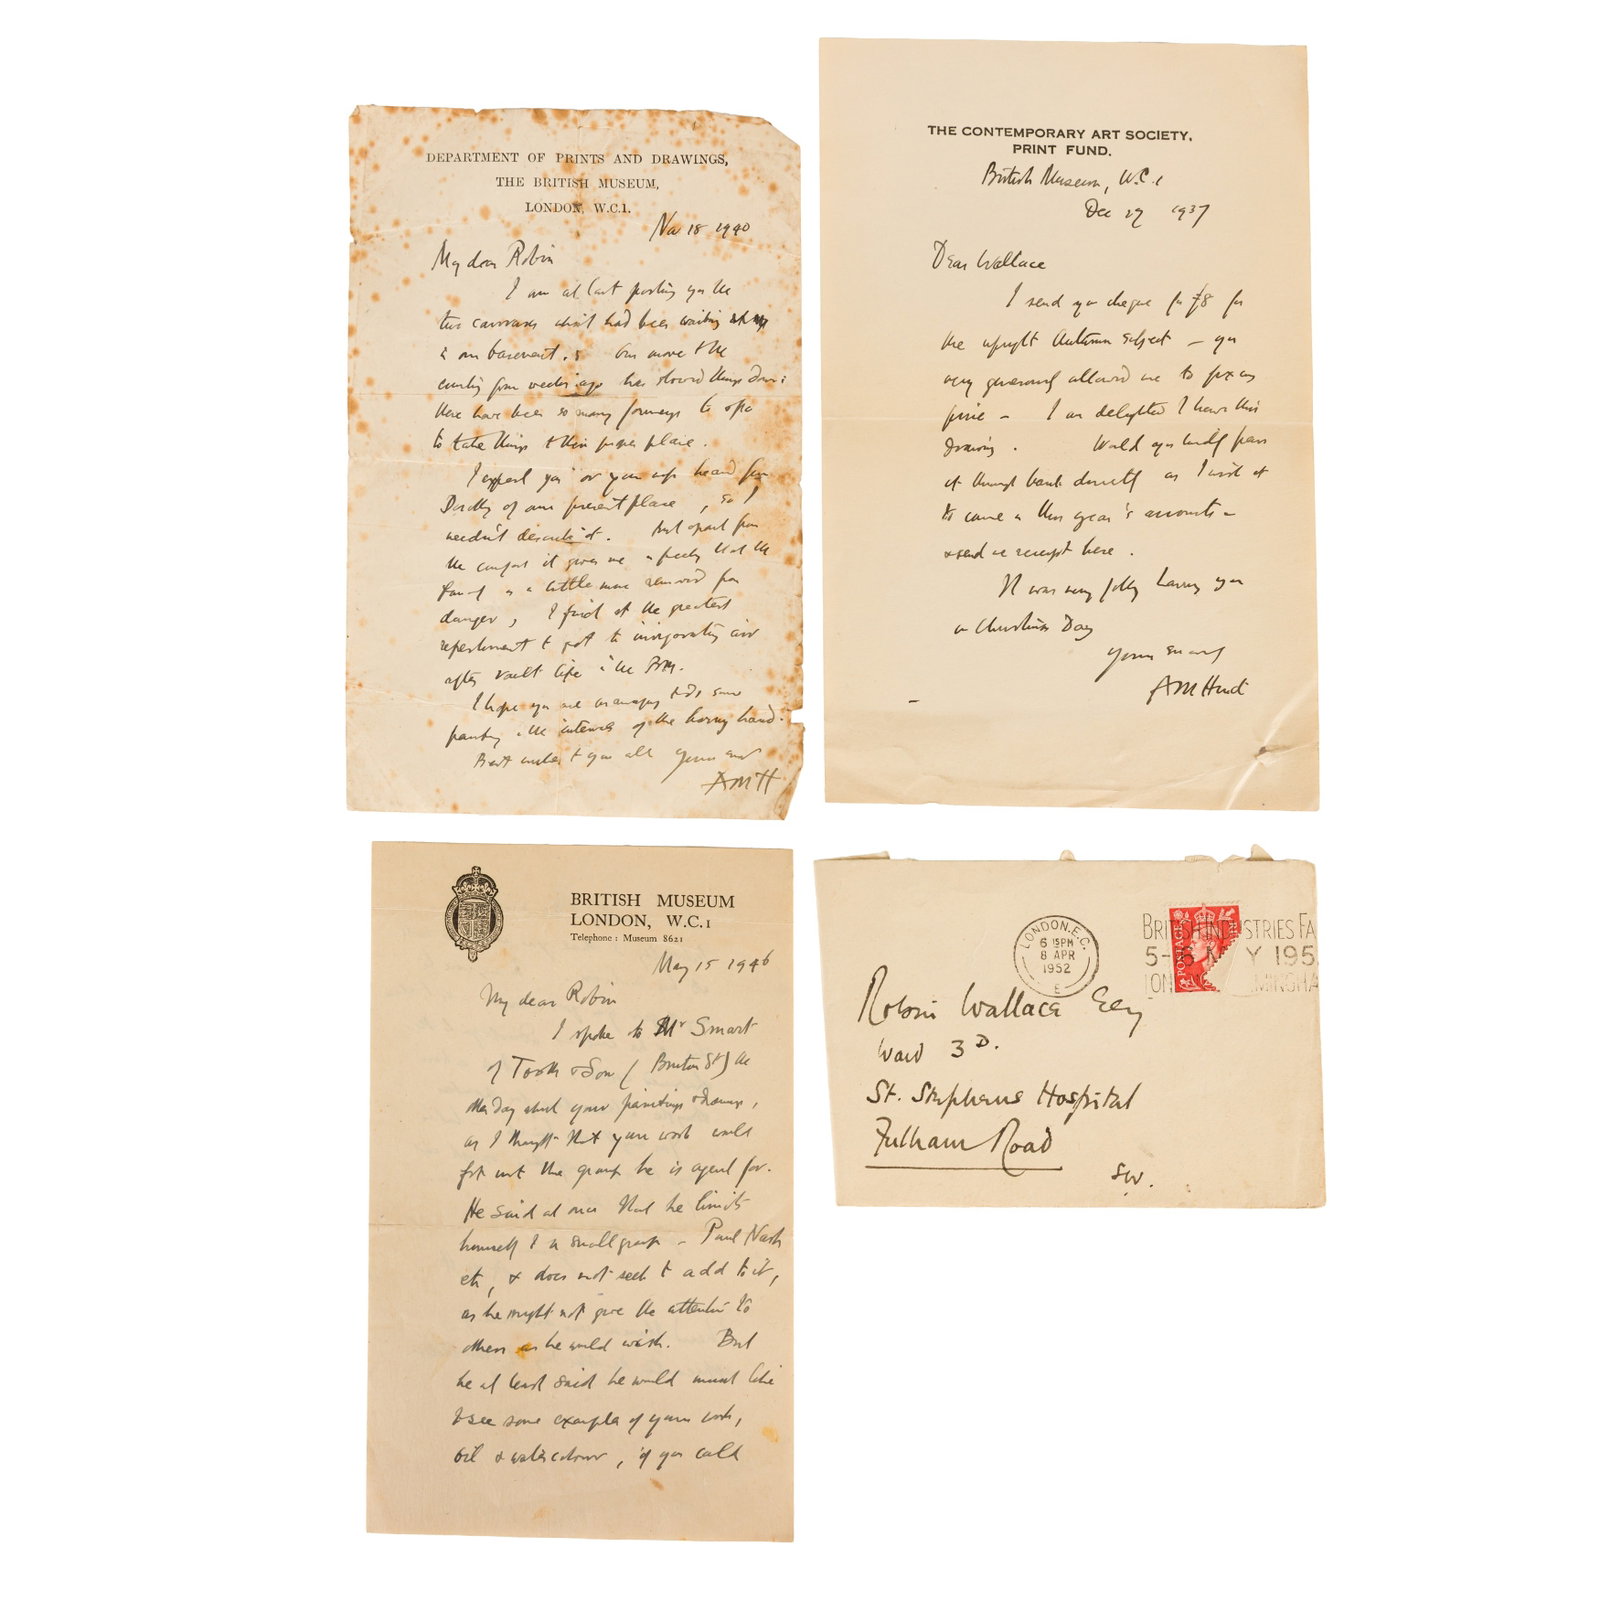 DEPARTMENT OF PRINTS AND DRAWINGS,
THE BRITISH MUSEUM,
LONDON, W.C.1.
Nov 18 1940
My dear Robin
I am at last posting you the
two canvases which had been waiting
in our basement. Our move to the
country four weeks ago has slowed things down:
there have been so many journeys to &
to take things to their proper place.
I expect you or your wife heard from
Dorothy of our present place, so I
needn't describe it. But apart from
the comfort it gives me a feeling that the
family is a little more removed from
danger, I find it the greatest
refreshment to get to invigorating air
after vault life in the BM.
I hope you are managing to do some
painting in the intervals of the horny hand.
Best wishes to you all Yours ever
AMH
THE CONTEMPORARY ART SOCIETY,
PRINT FUND.
British Museum, W.C.1
Dec 29 1937
Dear Wallace
I send you cheque for £8 for
the upright Autumn subject – you
very generously allowed me to fix my
price – I am delighted I have this
drawing. Would you kindly pass
it through bank directly as I wish it
to come in this year's accounts –
& send me receipt here.
It was very jolly having you
on Christmas Day
Yours sincerely
AMHind
BRITISH MUSEUM
LONDON, W.C.1
Telephone: Museum 8621
May 15 1946
My dear Robin
I spoke to Mr Smart
of Tooth & Son (Bruton St) the
other day about your paintings & drawings,
as I thought that your work would
fit into the group he is agent for.
He said at once that he limits
himself to a small group – Paul Nash
etc, & does not seek to add to it,
as he might not give the attention to
others as he would wish. But
he at least said he would much like
to see some examples of your work,
oil & watercolour, if you could
LONDON.E.C.
6 15PM
8 APR
1952
E
BRITISH INDUSTRIES FA
5-16 MAY 195
LON MINGHA
POSTAGE
Robin Wallace Esq
Ward 3D.
St. Stephens Hospital
Fulham Road
SW.